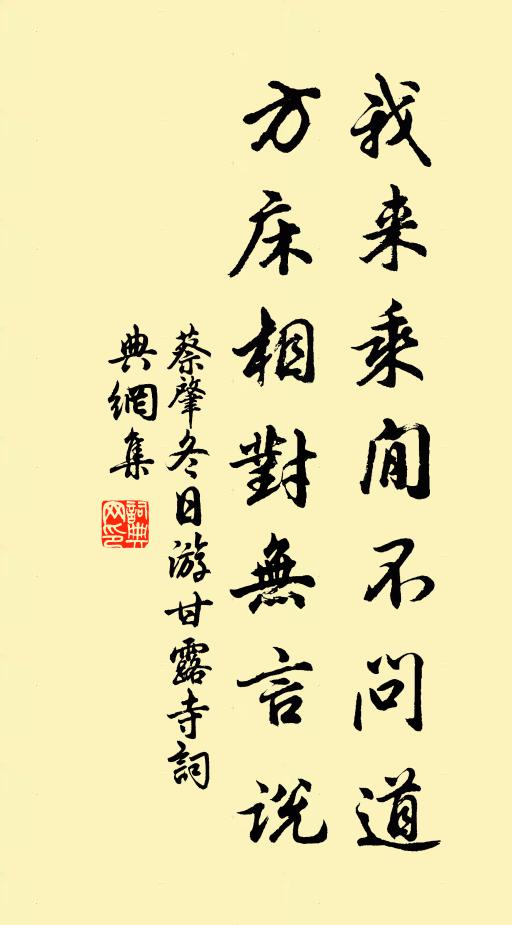 我来乘閒不问道
方床相對無言説
蔡肇冬日游甘露寺詞
典網集
詞典
网印